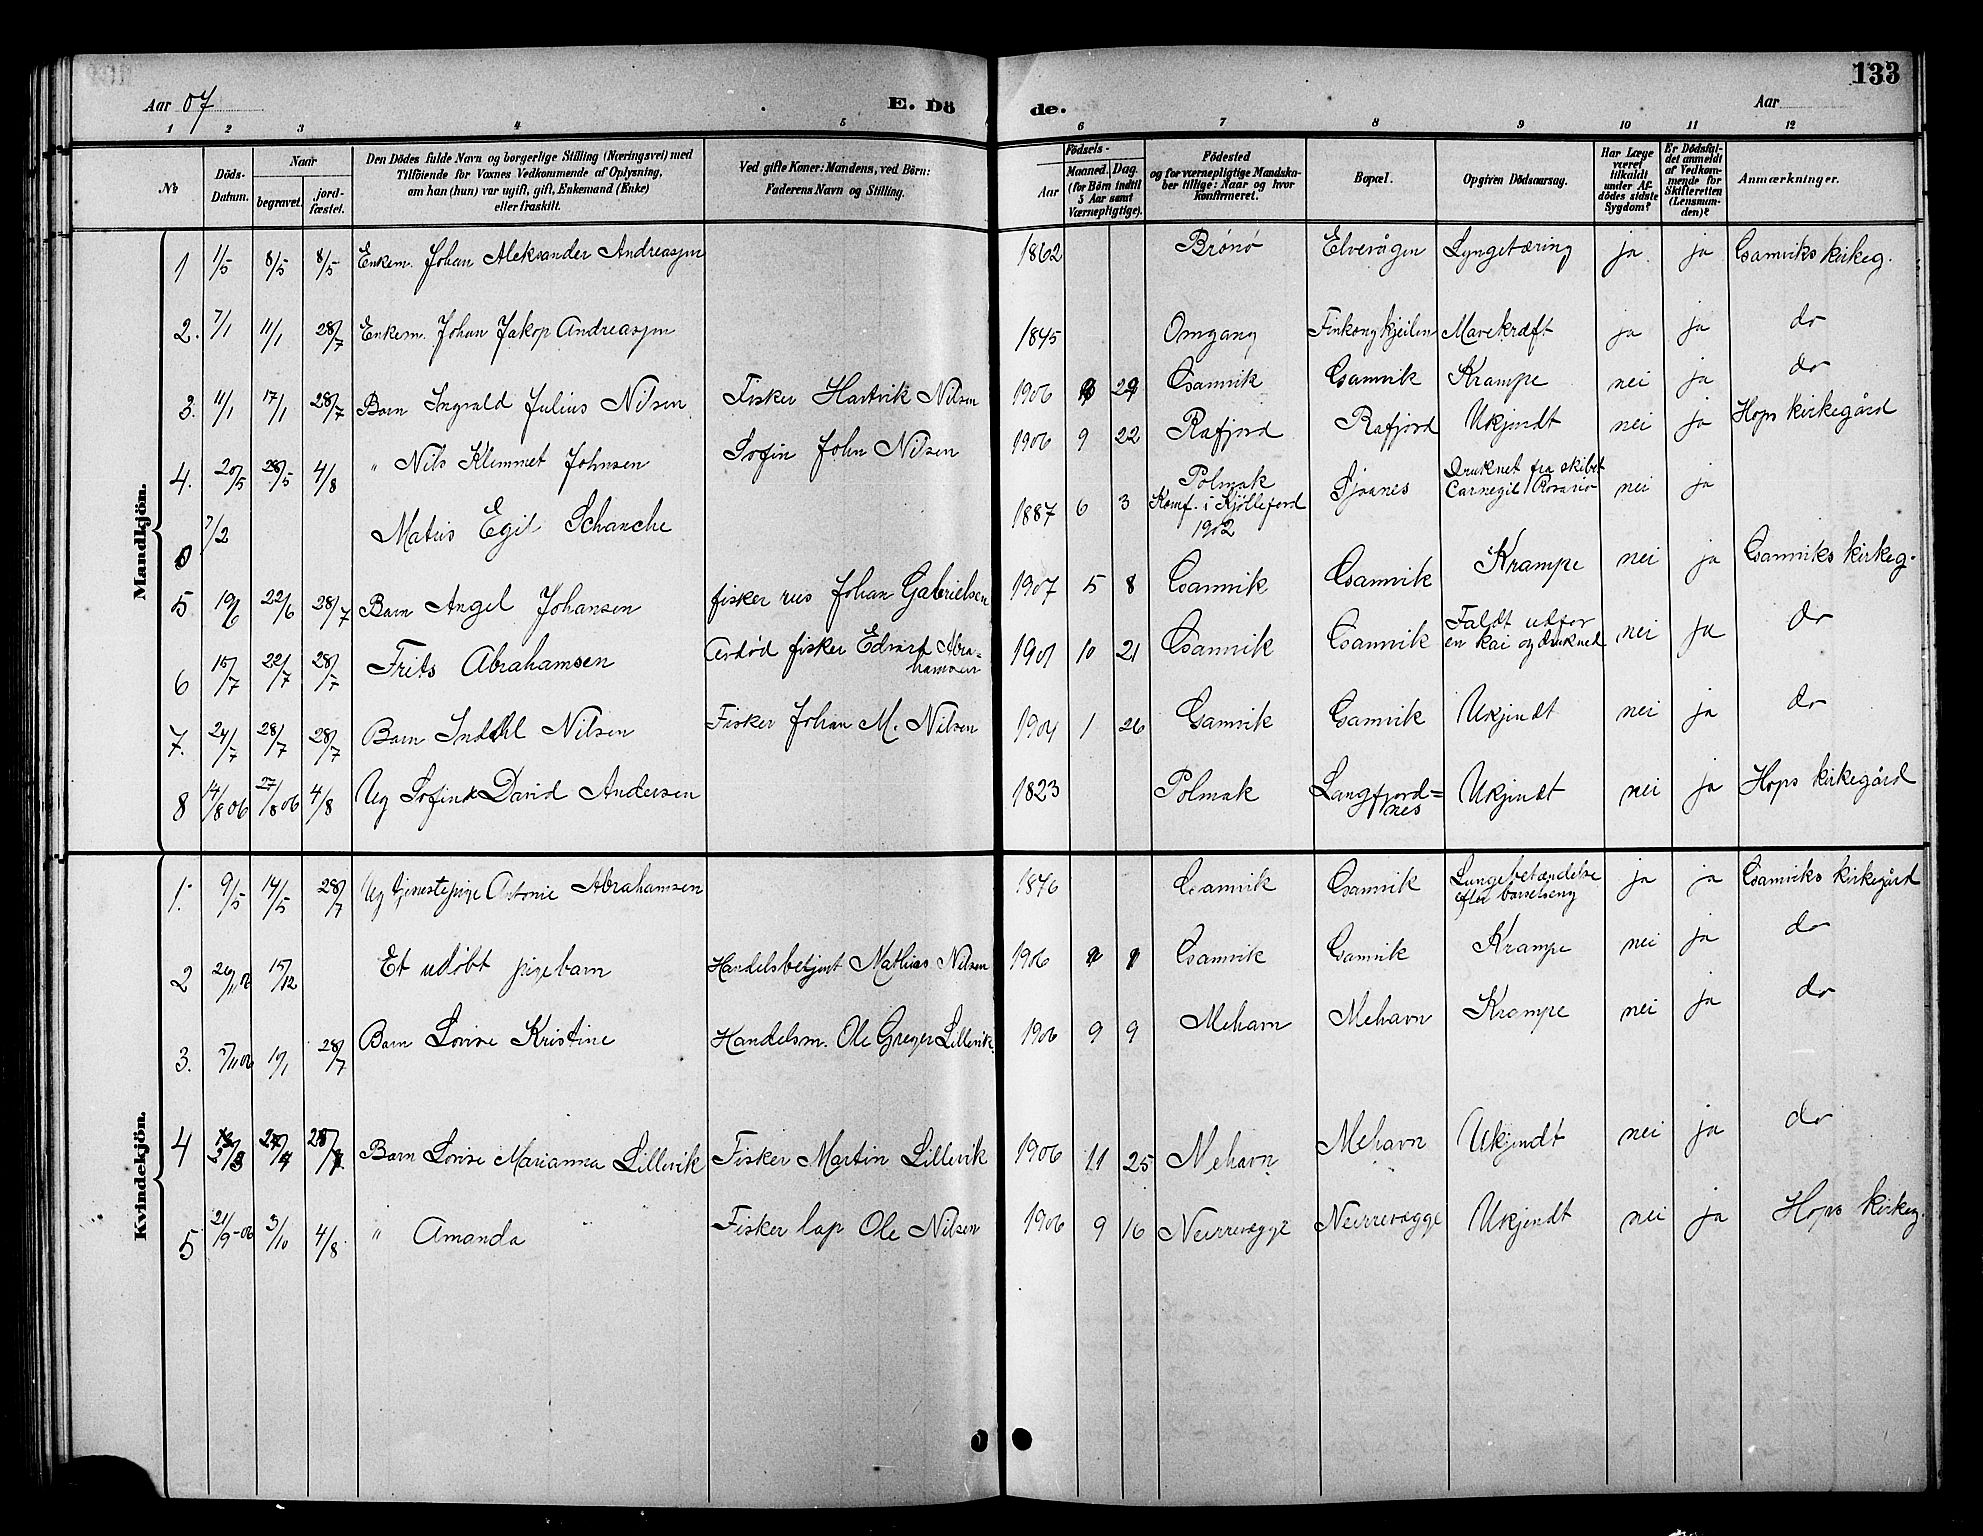 133
Aar 07 E. Dö de. Aar
1 2 3 4 5 6 7 8 9 10 11 12
No
Döds-Datum.
Naar
begravet.
jordfæstet.
Den Dödes fulde Navn og borgerlige Stilling (Næringsvei) med
Tilföiende for Voxnes Vedkommende af Oplysning,
om han (hun) var ugift, gift, Enkemand (Enke)
eller fraskilt.
Ved gifte Koner: Mandens, ved Börn:
Faderens Navn og Stilling.
Födsels-
Aar
Maaned. Dag.
(for Börn indtil
5 Aar samt
Værnepligtige).
Födested
og for værnepligtige Mandska-
ber tillige: Naar og hvor
konfirmeret.
Bopæl.
Opgiven Dödsaarsag.
Har Læge
været
tilkaldt
under Af-
dödes sidste
Sygdom?
Er Dödsfal-
det anmeldt
af Vedkom-
mende for
Skifteretten
(Lensman-
den)?
Anmærkninger.
Mandkjön.
1 1/5 8/5 8/5 Enkem. Johan Aleksander Andreassen 1862 Brønø Elvevågen Lyngetæring ja ja Gamviks kirkeg.
2. 7/1 11/1 28/7 Enkem. Johan Jakop Andreassen 1845 Omgang Finkongkjeilen Mavekræft ja ja do
3. 11/1 17/1 28/7 Barn Ingvald Julius Nilsen Fisker Hartvik Nilsen 1906 29 Gamvik Gamvik Krampe nei ja do
4. 20/5 28/5 4/8 " Nils Klemmet Johnsen Sofin John Nilsen 1906 9 22 Rafjord Rafjord Ukjendt nei ja Hops kirkegård
7/2 Matis Egil Schanche 1887 6 3 Polmak
Konf. i Kjøllefjord
1902
Druknet fra skibet
Carnegil Rosario nei ja
5 19/6 22/6 28/7 Barn Angel Johansen fisker rus Johan Gabrielsen 1907 5 8 Gamvik Gamvik Krampe nei ja Gamviks kirkeg.
6 15/7 22/7 28/7 Frits Abrahamsen Avdød fisker Edvart Abra-
hamsen 1901 10 21 Gamvik Gamvik Faldt udfor
en kai og drukned nei ja do
7. 24/7 28/7 28/7 Barn Nilsen Fisker Johan M. Nilsen 1904 1 26 Gamvik Gamvik Ukjendt nei ja do
8 14/8 06 27/8 06 4/8 Ug Sofink David Andersen 1823 Polmak Langfjord=
nes Ukjendt nei ja Hops kirkegård
Kvindekjön.
1. 9/5 14/5 28/7 Ug tjenestepige Antonie Abrahamsen 1876 Gamvik Gamvik Lungebetændelse
efter barselseng ja ja Gamviks kirkegård
2 15/12 Et udøbt pigebarn Handelsbetjent Mathias Nilsen 1906 Gamvik Gamvik Krampe nei ja do
3. 28/7 Barn Lovise Kristine Handelsm. Ole Greger Lillevik 1906 9 9 Mehavn Mehavn Krampe nei ja do
4 Barn Lovise Marianna Lillevik Fisker Martin Lillevik 1906 11 25 Mehavn Mehavn Ukjendt nei ja do
5 21/9-06 3/10 4/8 " Amanda Fisker lap Ole Nilsen 1906 9 16 Neirrevægge Neirrevægge Ukjendt nei ja Hops kirkeg.